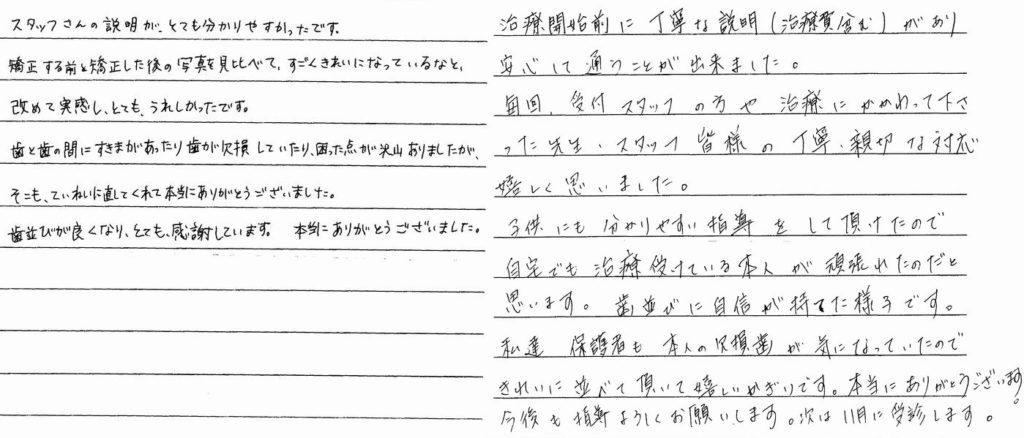 スタッフさんの説明が、とても分かりやすかったです。
矯正する前と矯正した後の写真を見比べて、すごくきれいになっているなと、
改めて実感し、とても、うれしかったです。
歯と歯の間にすきまがあったり歯が欠損していたり、困った点が沢山ありましたが、
そこも、ていねいに直してくれて本当にありがとうございました。
歯並びが良くなり、とても、感謝しています。 本当にありがとうございました。
治療開始前に丁寧な説明(治療費含む)があり
安心して通うことが出来ました。
毎回、受付スタッフの方や治療にかかわって下さ
った先生・スタッフ皆様の丁寧、親切な対応
嬉しく思いました。
子供にも分かりやすい指導をして頂けたので
自宅でも治療受けている本人が頑張れたのだと
思います。歯並びに自信が持てた様子です。
私達 保護者も本人の欠損歯が気になっていたので
きれいに並べて頂いて嬉しいかぎりです。本当にありがとうございます!
今後も指導よろしくお願いします。次は11月に受診します。